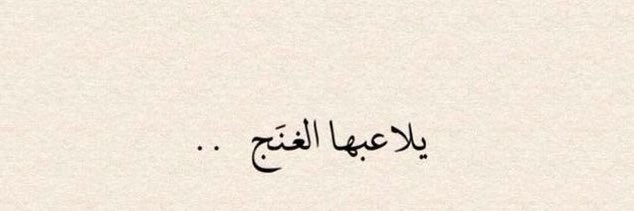 يلاعبها الغنَج ..